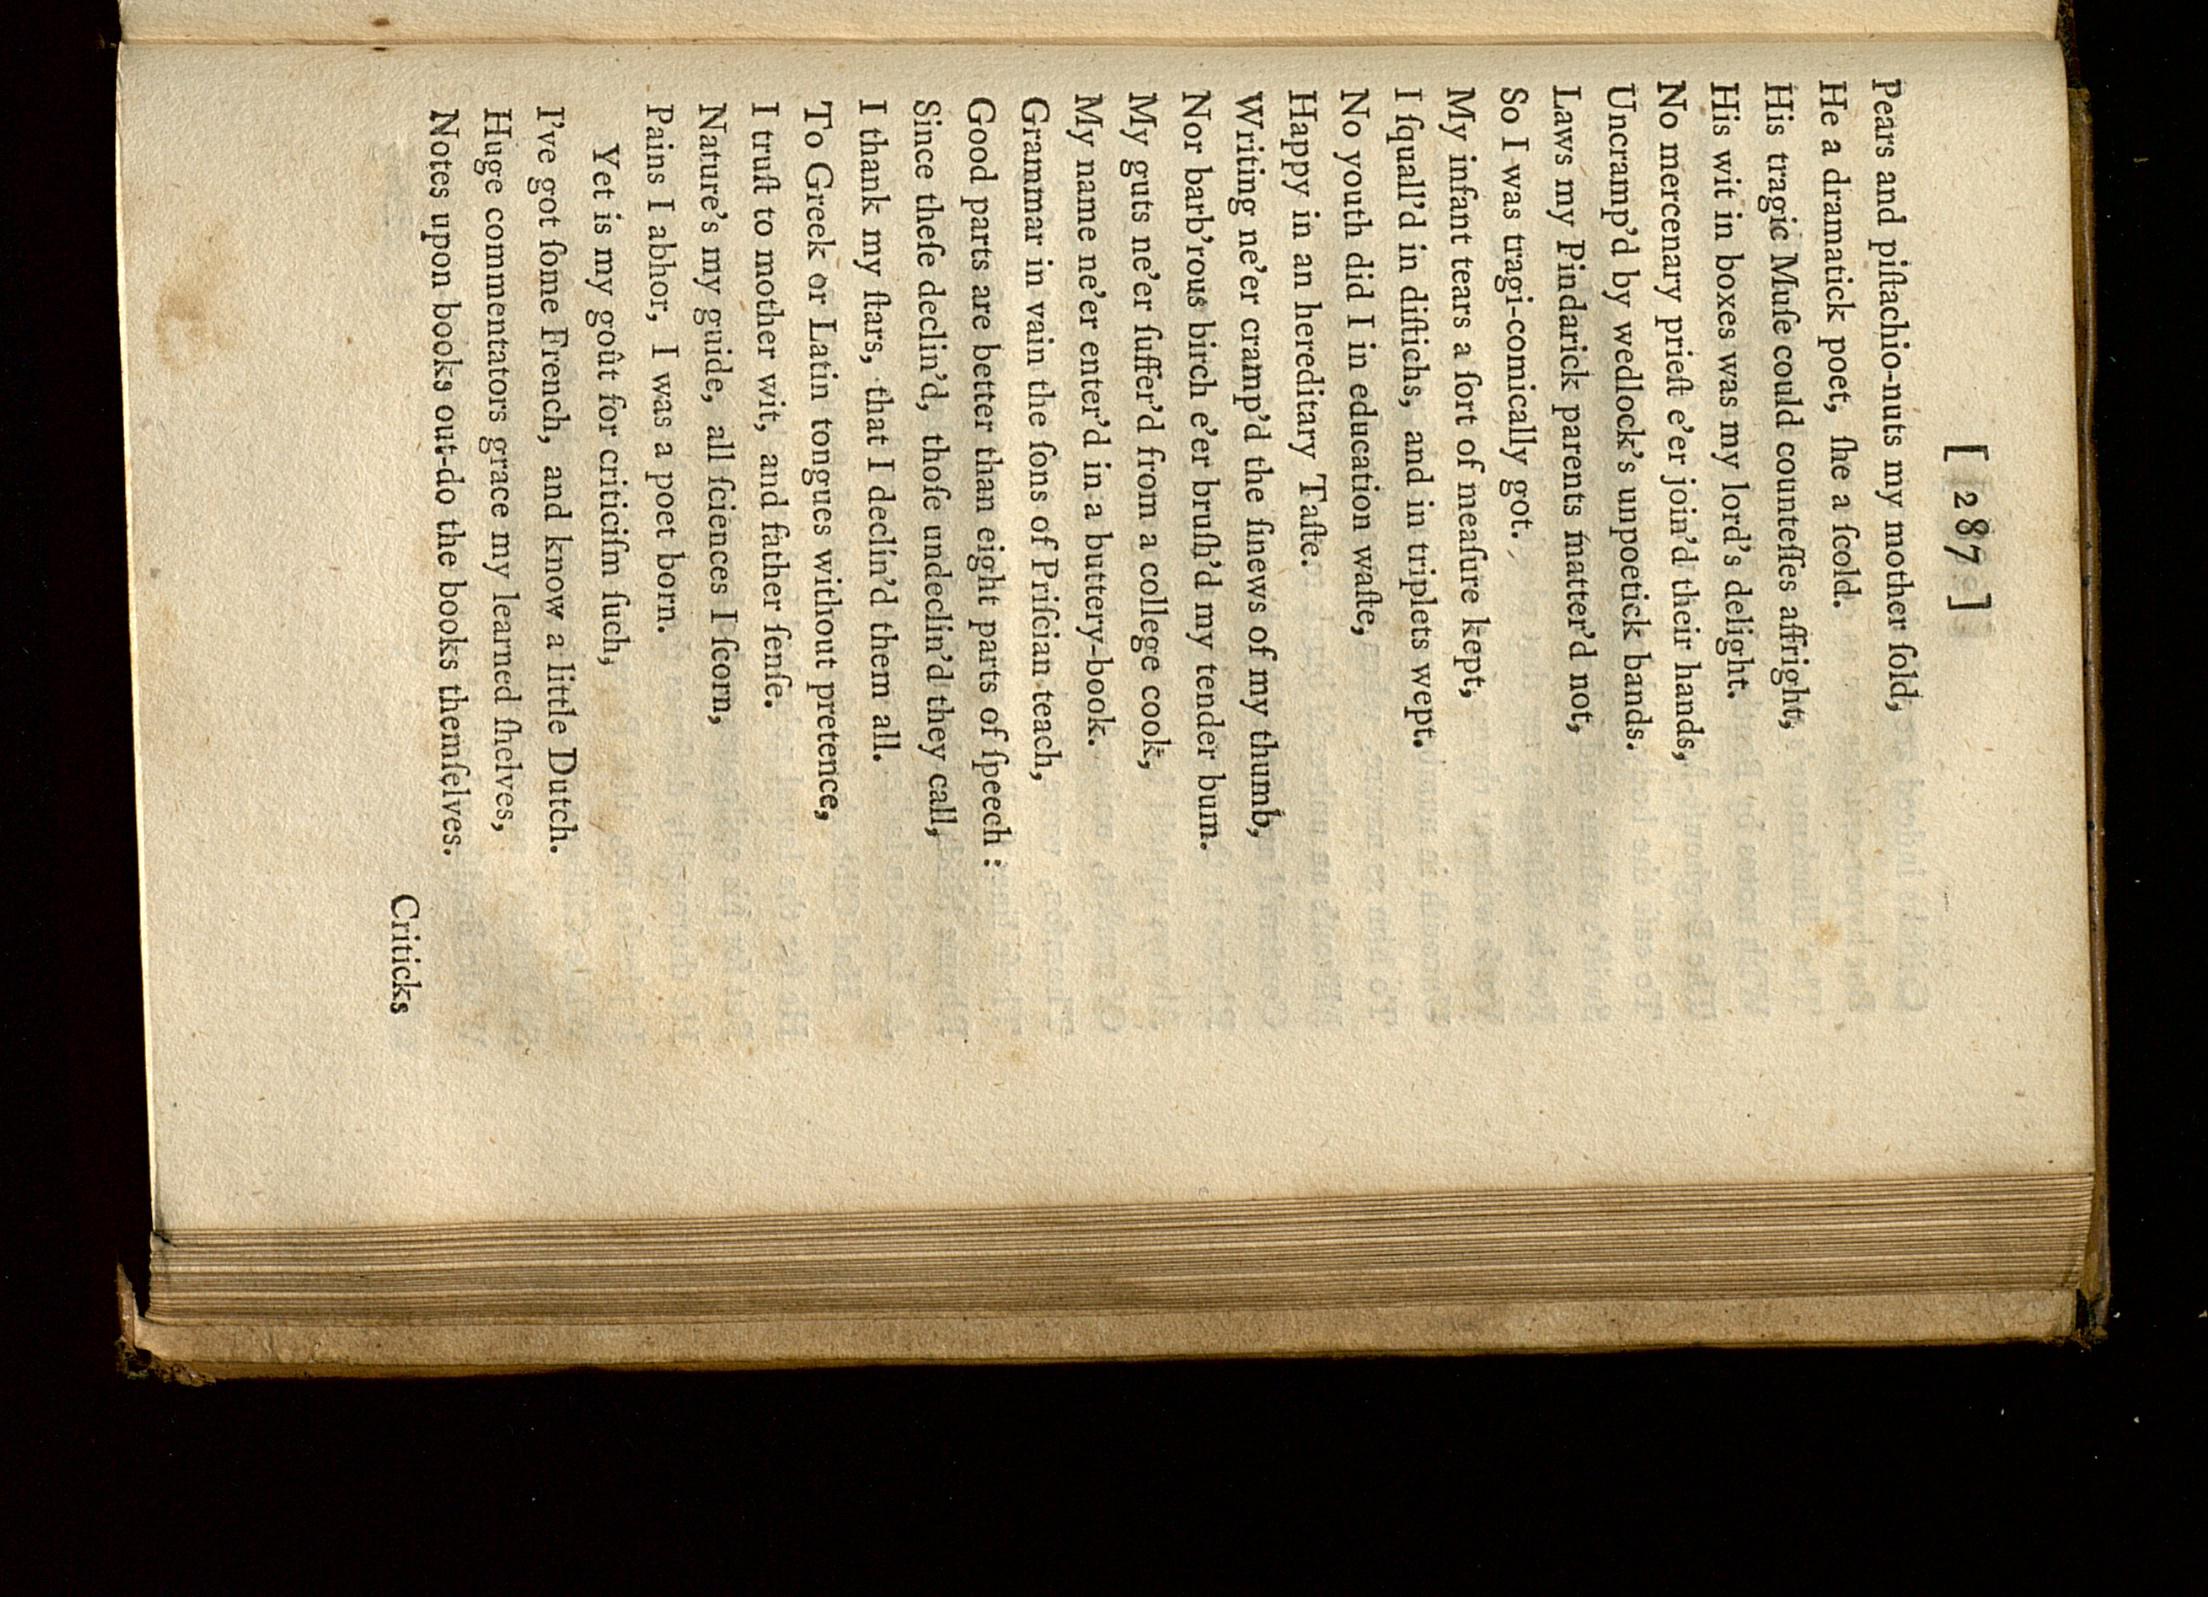 [ 287 ]
Pears and piſtachio-nuts my mother ſold,
He a dramatick poet, ſhe a ſcold.
His tragic Muſe could counteſſes affright,
His wit in boxes was my lord's delight.
No mercenary prieſt e'er join'd their hands,
Uncramp'd by wedlock's unpoetick bands.
Laws my Pindarick parents matter'd not,
So I was tragi-comically got.
My infant tears a ſort of meaſure kept,
I ſquall'd in diſtichs, and in triplets wept.
No youth did I in education waſte,
Happy in an hereditary Taſte.
Writing ne'er cramp'd the ſinews of my thumb,
Nor barb'rous birch e'er bruſh'd my tender bum.
My guts ne'er ſuffer'd from a college cook,
My name ne'er enter'd in a buttery-book.
Grammar in vain the ſons of Priſcian teach,
Good parts are better than eight parts of ſpeech:
Since theſe declin'd, thoſe undeclin'd they call,
I thank my ſtars, that I declin'd them all.
To Greek or Latin tongues without pretence,
I truſt to mother wit, and father ſenſe.
Nature's my guide, all ſciences I ſcorn,
Pains I abhor, I was a poet born.
Yet is my goût for criticiſm ſuch,
I've got ſome French, and know a little Dutch.
Huge commentators grace my learned ſhelves,
Notes upon books out-do the books themſelves.
Criticks